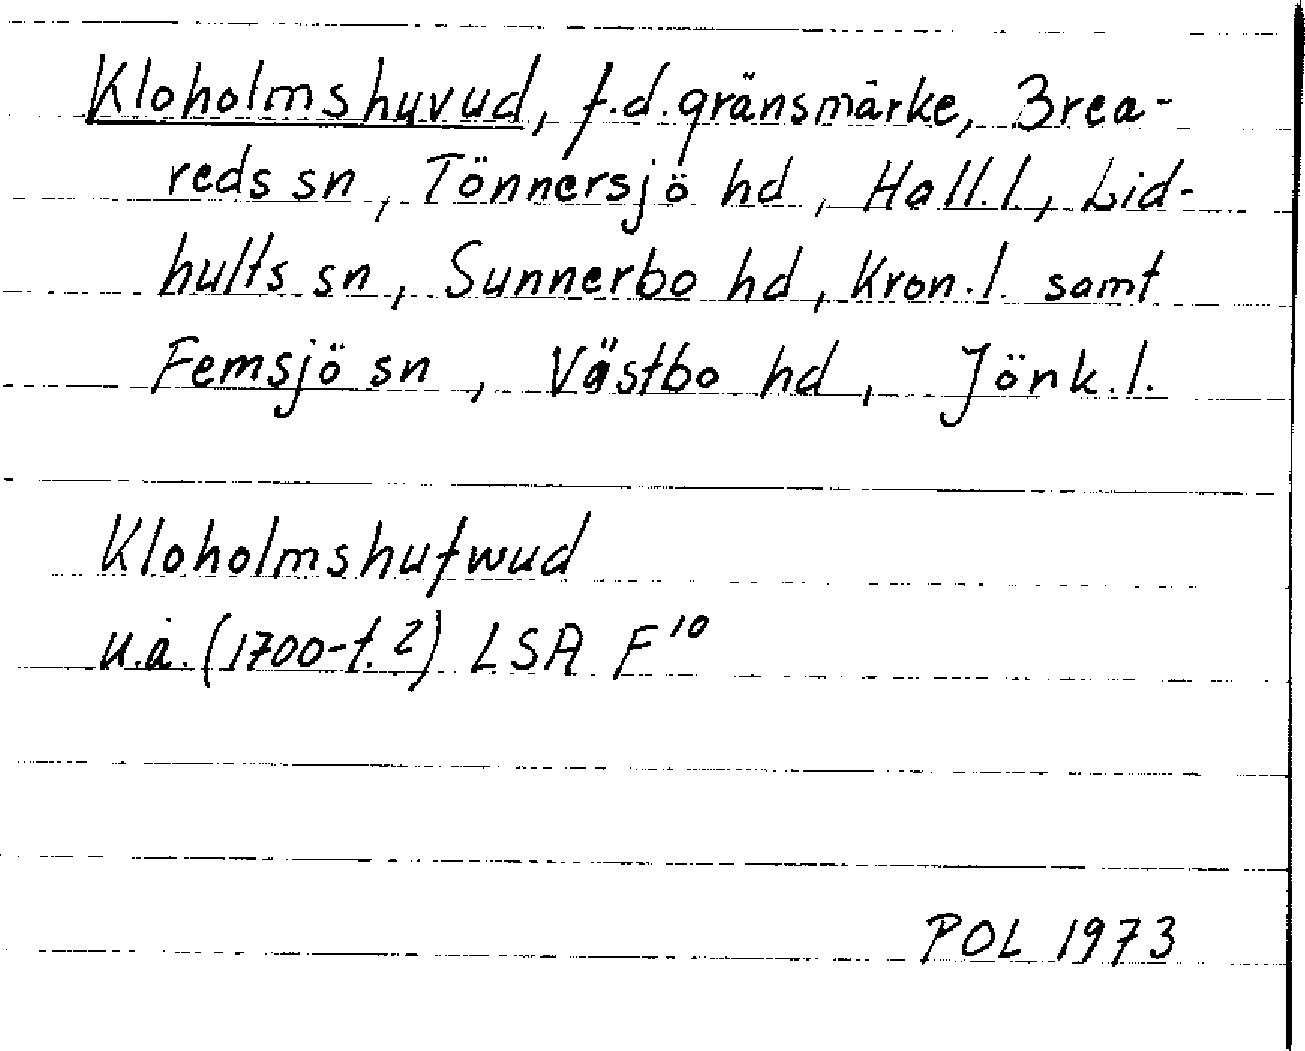 Kloholmshuvud, f.d. gränsmärke, Brea-
reds sn, Tönnersjö hd, Hall.l, Lid-
hults sn, Sunnerbo hd, Kron.l. samt
Femsjö sn, Västbo hd, Jönk.l.
Kloholmshufwud
u.å. (1700-t.?) LSA F10
POL 1973